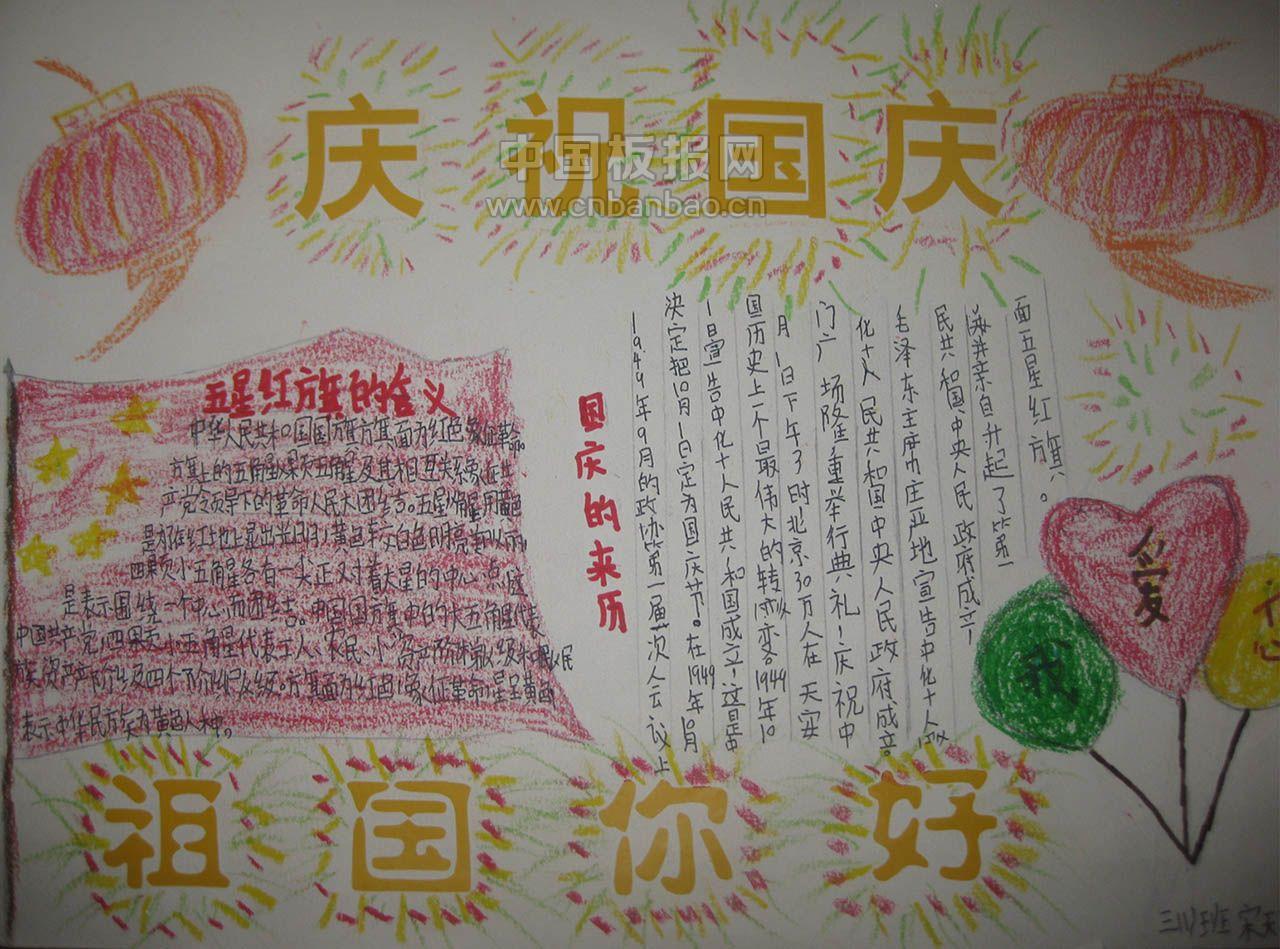 庆祝国庆
中国板报网
www.cnbanbao.cn
五星红旗的含义
中华人民共和国国旗旗面为红色象征革命。
旗上的五角星及其相互关系象征共
产党领导下的革命人民大团结。五星用黄色
是为在红地上显出光明,黄色较白色明亮美丽,
四颗小五角星各有一尖正对着大星的中心点,
是表示围绕一个中心而团结。中国国旗中的大五角星代表
中国共产党,四颗小五角星代表工人、农民、小资产阶级和民
族资产阶级四个阶级。旗面为红色,象征革命,星呈黄色
表示中华民族为黄色人种。
国庆的来历
1949年9月的政协第一届一次会议上
决定把10月1日定为国庆节。在1949年10月
1日宣告中华人民共和国成立!这是中
国历史上一个最伟大的转变。1949年10
月1日下午3时,北京30万人在天安
门广场隆重举行典礼!庆祝中
华人民共和国中央人民政府成立。
毛泽东主席庄严地宣告中华人
民共和国,中央人民政府成立!
并亲自升起了第一
面五星红旗。
我
爱
祖国你好
三(1)班 宋